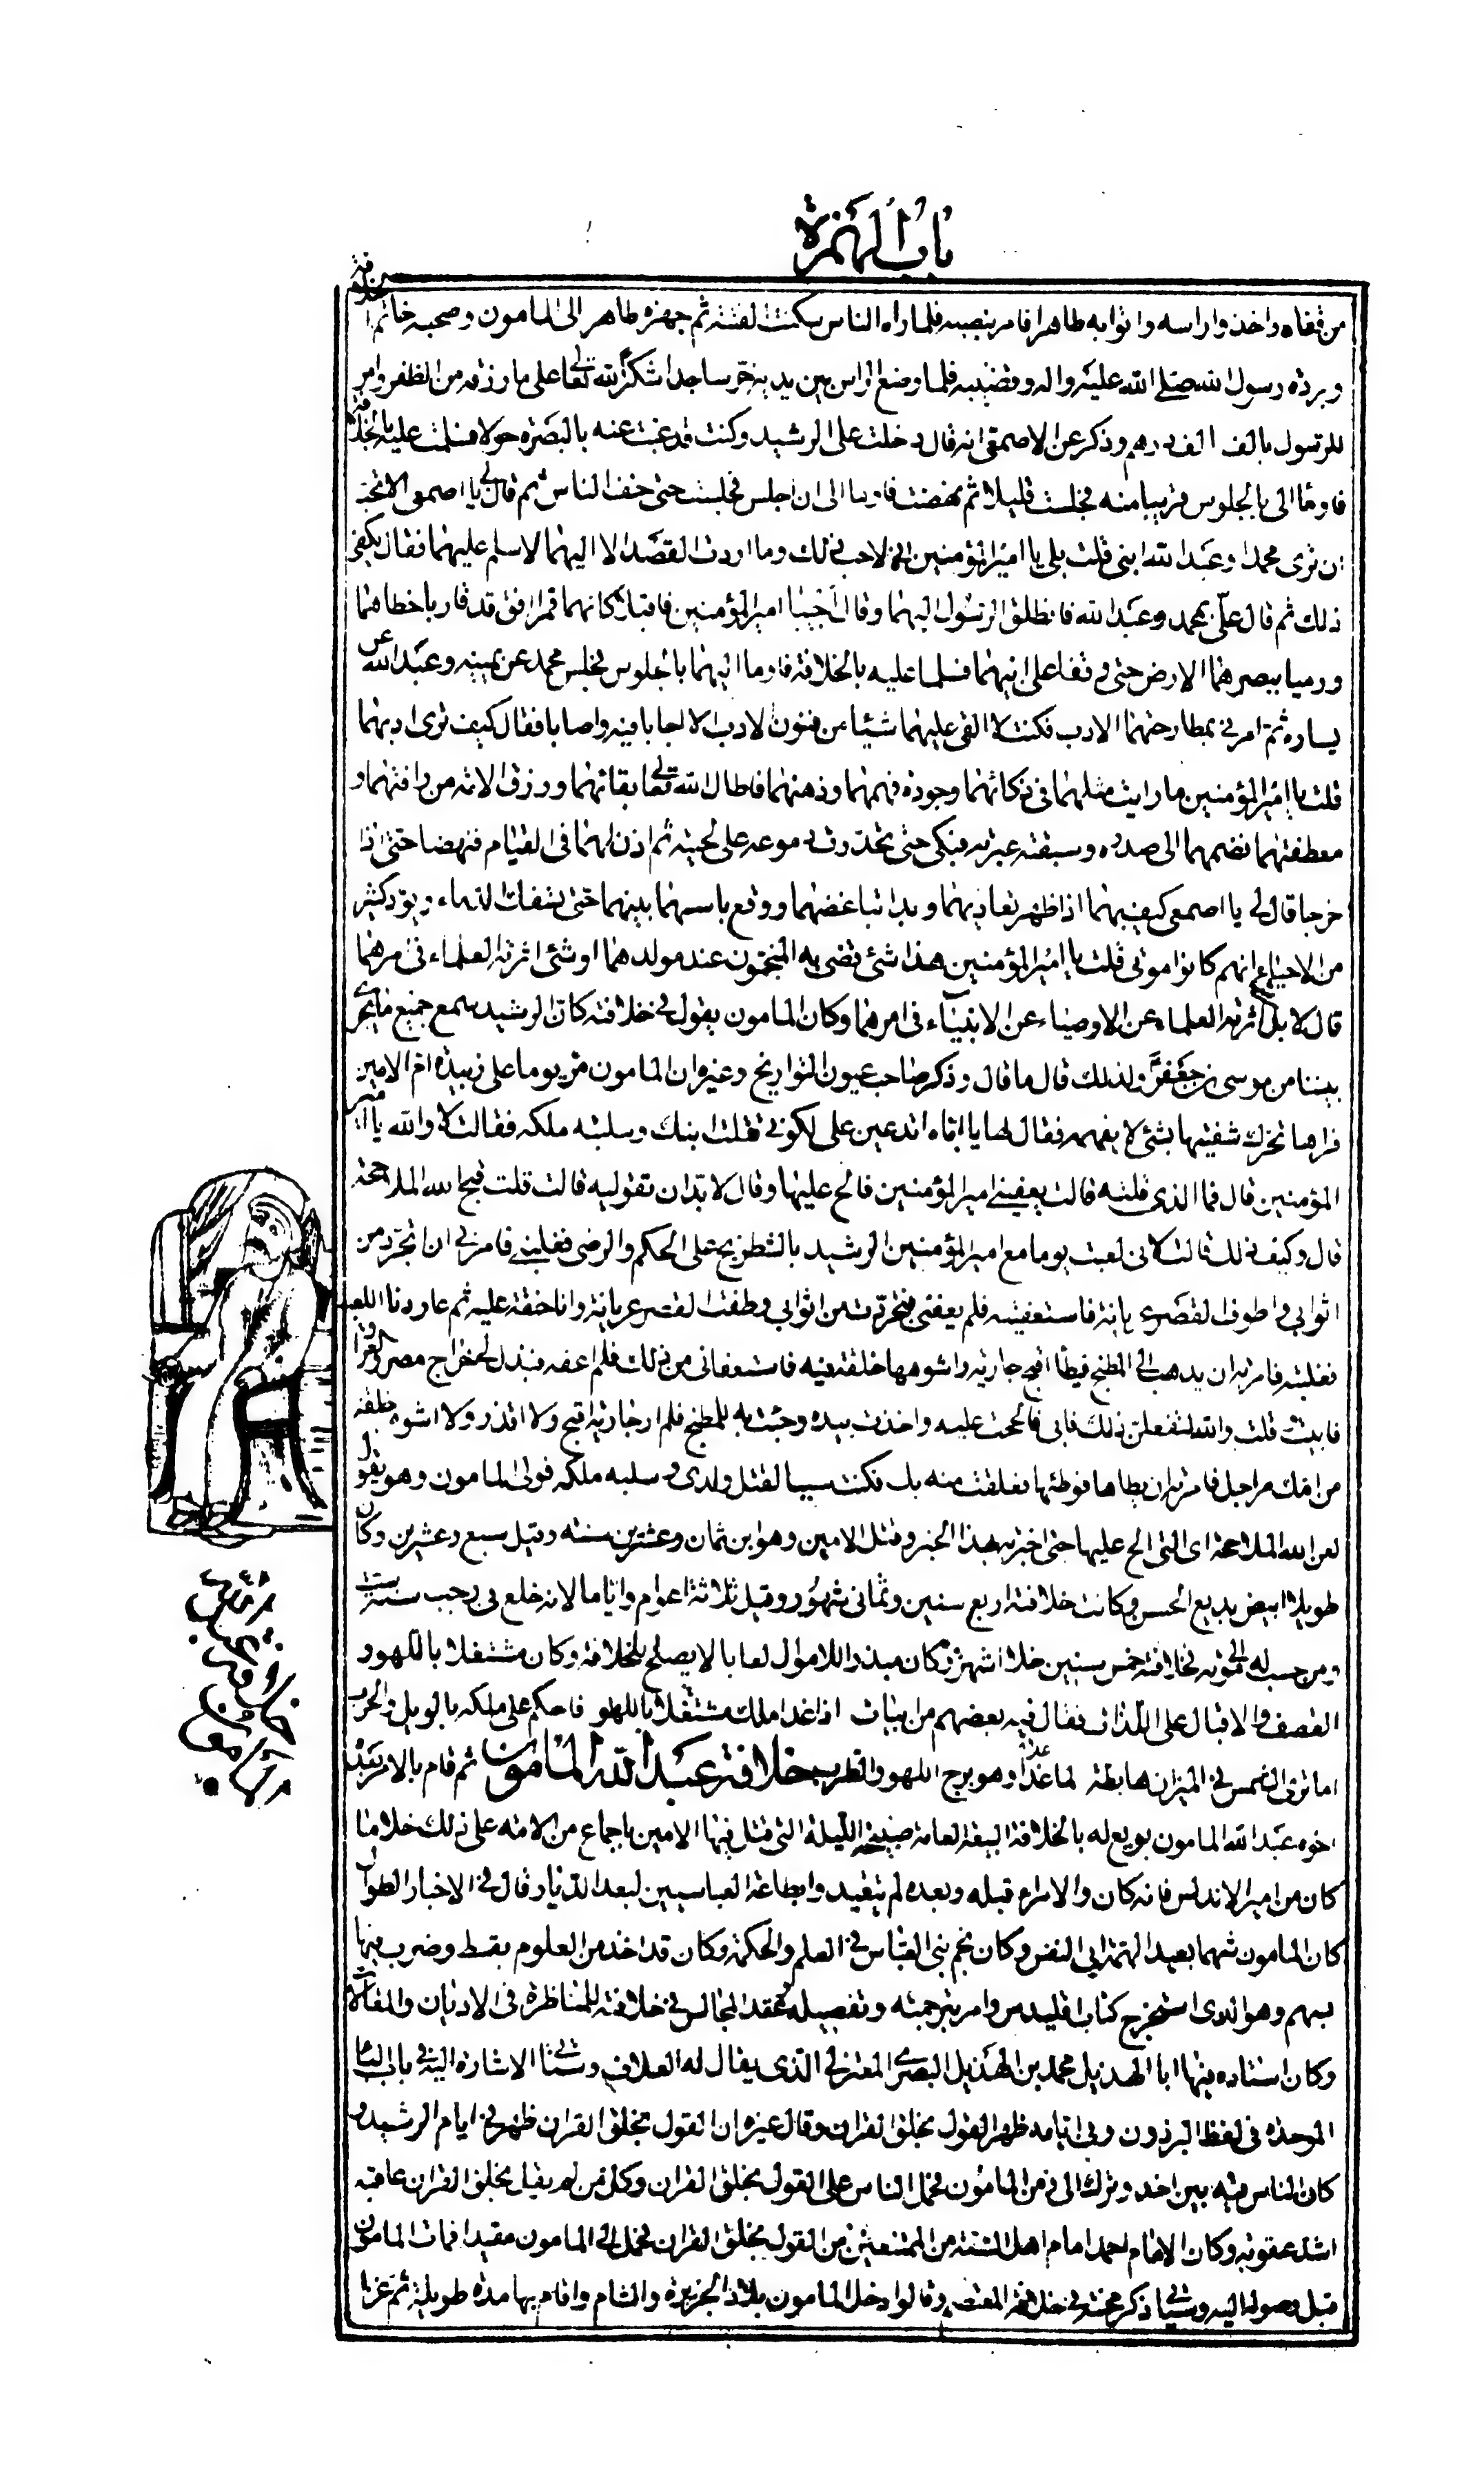 باب الهمزة
من قفاه واخذوا راسه واتوا به طاهرا فامر بنصبه فلما راه الناس سكنت الفتنة ثم جهزه طاهر الى المامون وصحبه خاتم الخلافة
وبردة رسول الله صلى الله عليه واله وقضيبه فلما وضع الراس بين يديه خر ساجدا شكرا لله تعالى على ما رزقه من الظفر وامر
للرسول بالف الف درهم وذكر عن الاصمعى انه قال دخلت على الرشيد وكنت قد غبت عنه بالبصرة حولا فسلمت عليه بالخلافة
فاوما الى بالجلوس قريبا منه فجلست قليلا ثم نهضت فاوما الى ان اجلس فجلست حتى خف الناس ثم قال لى يا اصمعى الا تحب
ان ترى محمدا وعبد الله ابنى قلت بلى يا امير المؤمنين انى لاحب ذلك وما اردت القصد الا اليهما لاسلم عليهما فقال يكفى
ذلك ثم قال على بمحمد وعبد الله فانطلق الرسول اليهما وقال اجيبا امير المؤمنين فاقبلا كانهما قمرا افق قد قاربا خطاهما
ورميا ببصرهما الارض حتى وقفا على ابيهما فسلما عليه بالخلافة فاوما اليهما بالجلوس فجلس محمد عن يمينه وعبد الله عن
يساره ثم امرنى بمطارحتهما الادب فكنت لا القى عليهما شيئا من فنون الادب الا اجابا فيه واصابا فقال كيف ترى ادبهما
قلت يا امير المؤمنين ما رايت مثلهما فى ذكائهما وجودة فهمهما وذهنهما فاطال الله تعالى بقائهما ورزق الامة من رافتهما و
معطفتهما فضمهما الى صدره وسبقته عبرته فبكى حتى تحدرت دموعه على لحيته ثم اذن لهما فى القيام فنهضا حتى اذا
خرجا قال لى يا اصمعى كيف بهما اذا ظهر تعاديهما وبدا تباغضهما ووقع باسهما بينهما حتى تسفك الدماء ويود كثير
من الاحياء انهم كانوا موتى قلت يا امير المؤمنين هذا شئ قضى به المنجمون عند مولدهما او شئ اثرته العلماء فى امرهما
قال لا بل اثرته العلماء عن الاوصياء عن الانبياء فى امرهما وكان المامون يقول فى خلافته كان الرشيد سمع جميع ما يجرى
بيننا من موسى بن جعفر ولذلك قال ما قال وذكر صاحب عيون التواريخ وغيره ان المامون مر يوما على زبيدة ام الامين
فراها تحرك شفتيها بشئ لا يفهمه فقال لها يا اماه اتدعين على لكونى قتلت ابنك وسلبته ملكه فقالت لا والله يا امير
المؤمنين قال فما الذى قلته قالت يعفينى امير المؤمنين فالح عليها وقال لا بد ان تقوليه قالت قلت قبح الله الملاححة
قال وكيف ذلك قالت لانى لعبت يوما مع امير المؤمنين الرشيد بالشطرنج على الحكم والرضى فغلبنى فامرنى ان اتجرد من
اثوابى واطوف القصر عريانة فاستعفيته فلم يعفنى فتجردت من اثوابى وطفت القصر عريانة وانا حنقة عليه ثم عاودنا اللعب
فغلبته فامرته ان يذهب الى المطبخ فيطا اقبح جارية واشوهها خلقة فيه فاستعفانى من ذلك فلم اعفه فبذل لى خراج مصر والعراق
فابيت وقلت والله لتفعلن ذلك فابى فالححت عليه واخذت بيده وجئت به للمطبخ فلم ار جارية اقبح ولا اقذر ولا اشوه خلقة
من امك مراجل فامرته ان يطاها فوطئها فعلقت منه بك فكنت سببا لقتل ولدى وسلبه ملكه فولى المامون وهو يقول
لعن الله الملاححة اى التى الح عليها حتى اخبرته بهذا الخبر وقتل الامين وهو ابن ثمان وعشرين سنة وقيل سبع وعشرين وكان
طويلا ابيض بديع الحسن وكانت خلافته اربع سنين وثمانى شهور وقيل ثلاثة اعوام واياما لانه خلع فى رجب سنة
ومن حسب له الى موته فخلافته خمس سنين خلا اشهر وكان مبذرا للاموال لعابا لا يصلح للخلافة وكان مشتغلا باللهو و
القصف والاقبال على اللذات فقال فيه بعضهم من ابيات اذا غدا ملك مشتغلا باللهو فاحكم على ملكه بالويل والحرب
اما ترى الشمس فى الميزان هابطة لما غدا وهو برج اللهو والطرب خلافة عبد الله المامون ثم قام بالامر بعده
اخوه عبد الله المامون بويع له بالخلافة البيعة العامة صبيحة الليلة التى قتل فيها الامين باجماع من الامة على ذلك خلا ما
كان من امير الاندلس فانه كان والامراء قبله وبعده لم يتقيدوا بطاعة العباسيين لبعد الديار قال فى الاخبار الطوال
كان المامون شهما بعيد الهمة ابى النفس وكان نجم بنى العباس فى العلم والحكمة وكان قد اخذ من العلوم بقسط وضرب فيها
بسهم وهو الذى استخرج كتاب اقليدس وامر بترجمته وتفصيله وعقد المجالس فى خلافته للمناظرة فى الاديان والمقالات
وكان استاده فيها ابا الهذيل محمد بن الهذيل البصرى المعتزلى الذى يقال له العلاف وستاتى الاشارة اليه فى باب الباء
الموحدة فى لفظ البرذون وفى ايامه ظهر القول بخلق القران وقال غيره ان القول بخلق القران ظهر فى ايام الرشيد و
كان الناس فيه بين اخذ وترك الى زمن المامون فحمل الناس على القول بخلق القران وكل من لم يقل بخلق القران عاقبه
اشد عقوبة وكان الامام احمد امام اهل السنة من الممتنعين من القول بخلق القران فحمل الى المامون مقيدا فمات المامون
قبل وصوله اليه وسياتى ذكر محنته فى خلافة المعتصم وقالوا دخل المامون بلاد الجزيرة والشام واقام بها مدة طويلة ثم غزا